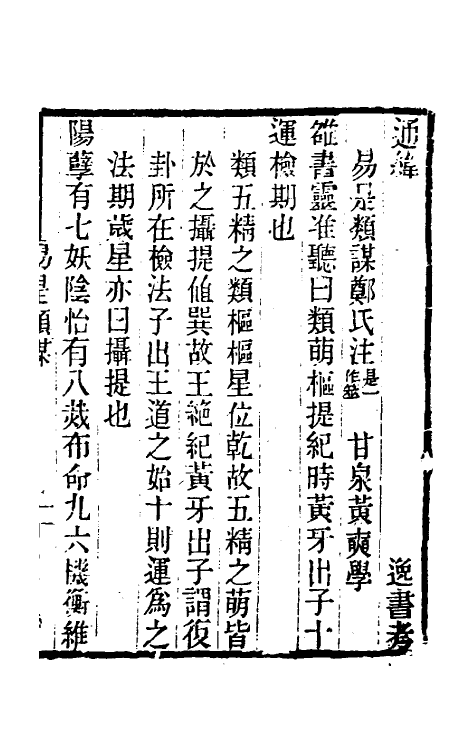 通緯 逸書考
易是類謀鄭氏注 是一作筮 甘泉黃奭學
雒書靈准聽曰類萌樞提紀時黃牙出子十
運檢期也
類五精之類樞樞星位乾故五精之萌皆
於之攝提值巽故王絶紀黃牙出子謂復
卦所在檢法子出王道之始十則運為之
法期歲星亦曰攝提也
陽孽有七妖陰怡有八烖布命九六機衡維
易是類謀 一